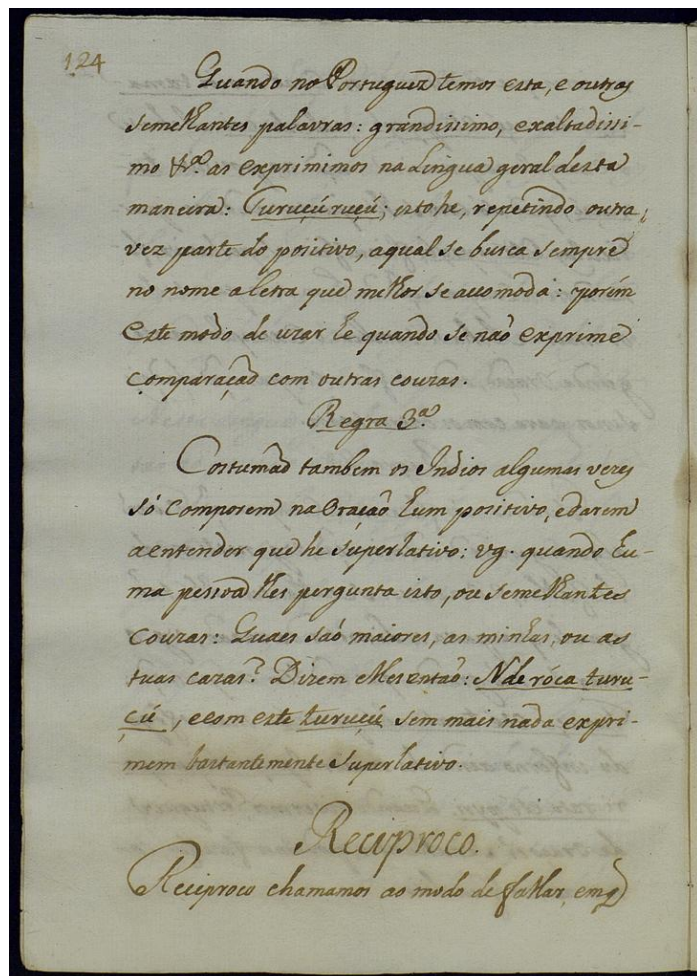 124
Quando no Portuguez temos esta, e outras
semelhantes palavras: grandissimo, exaltadissi-
mo &.ª as exprimimos na Lingua geral desta
maneira: Turuçúruçú; isto he, repetindo outra
vez parte do positivo, aqual se busca sempre
no nome aletra que melhor se accomoda: porém
este modo de uzar he quando se naõ exprime
comparaçaõ com outras couzas.
Regra 3.ª
Costumaõ tambem os Indios algumas vezes
só comporem na Oraçaõ hum positivo, edarem
aentender que he superlativo: vg. quando hu-
ma pessoa lhes pergunta isto, ou semelhantes
couzas: Quaes saõ maiores, as minhas, ou as
tuas cazas? Dizem elles entaõ: Nde róca turu-
çú, ecom este turuçú sem mais nada expri-
mem bastantemente superlativo.
Reciproco.
Reciproco chamamos ao modo de fallar, emq̃